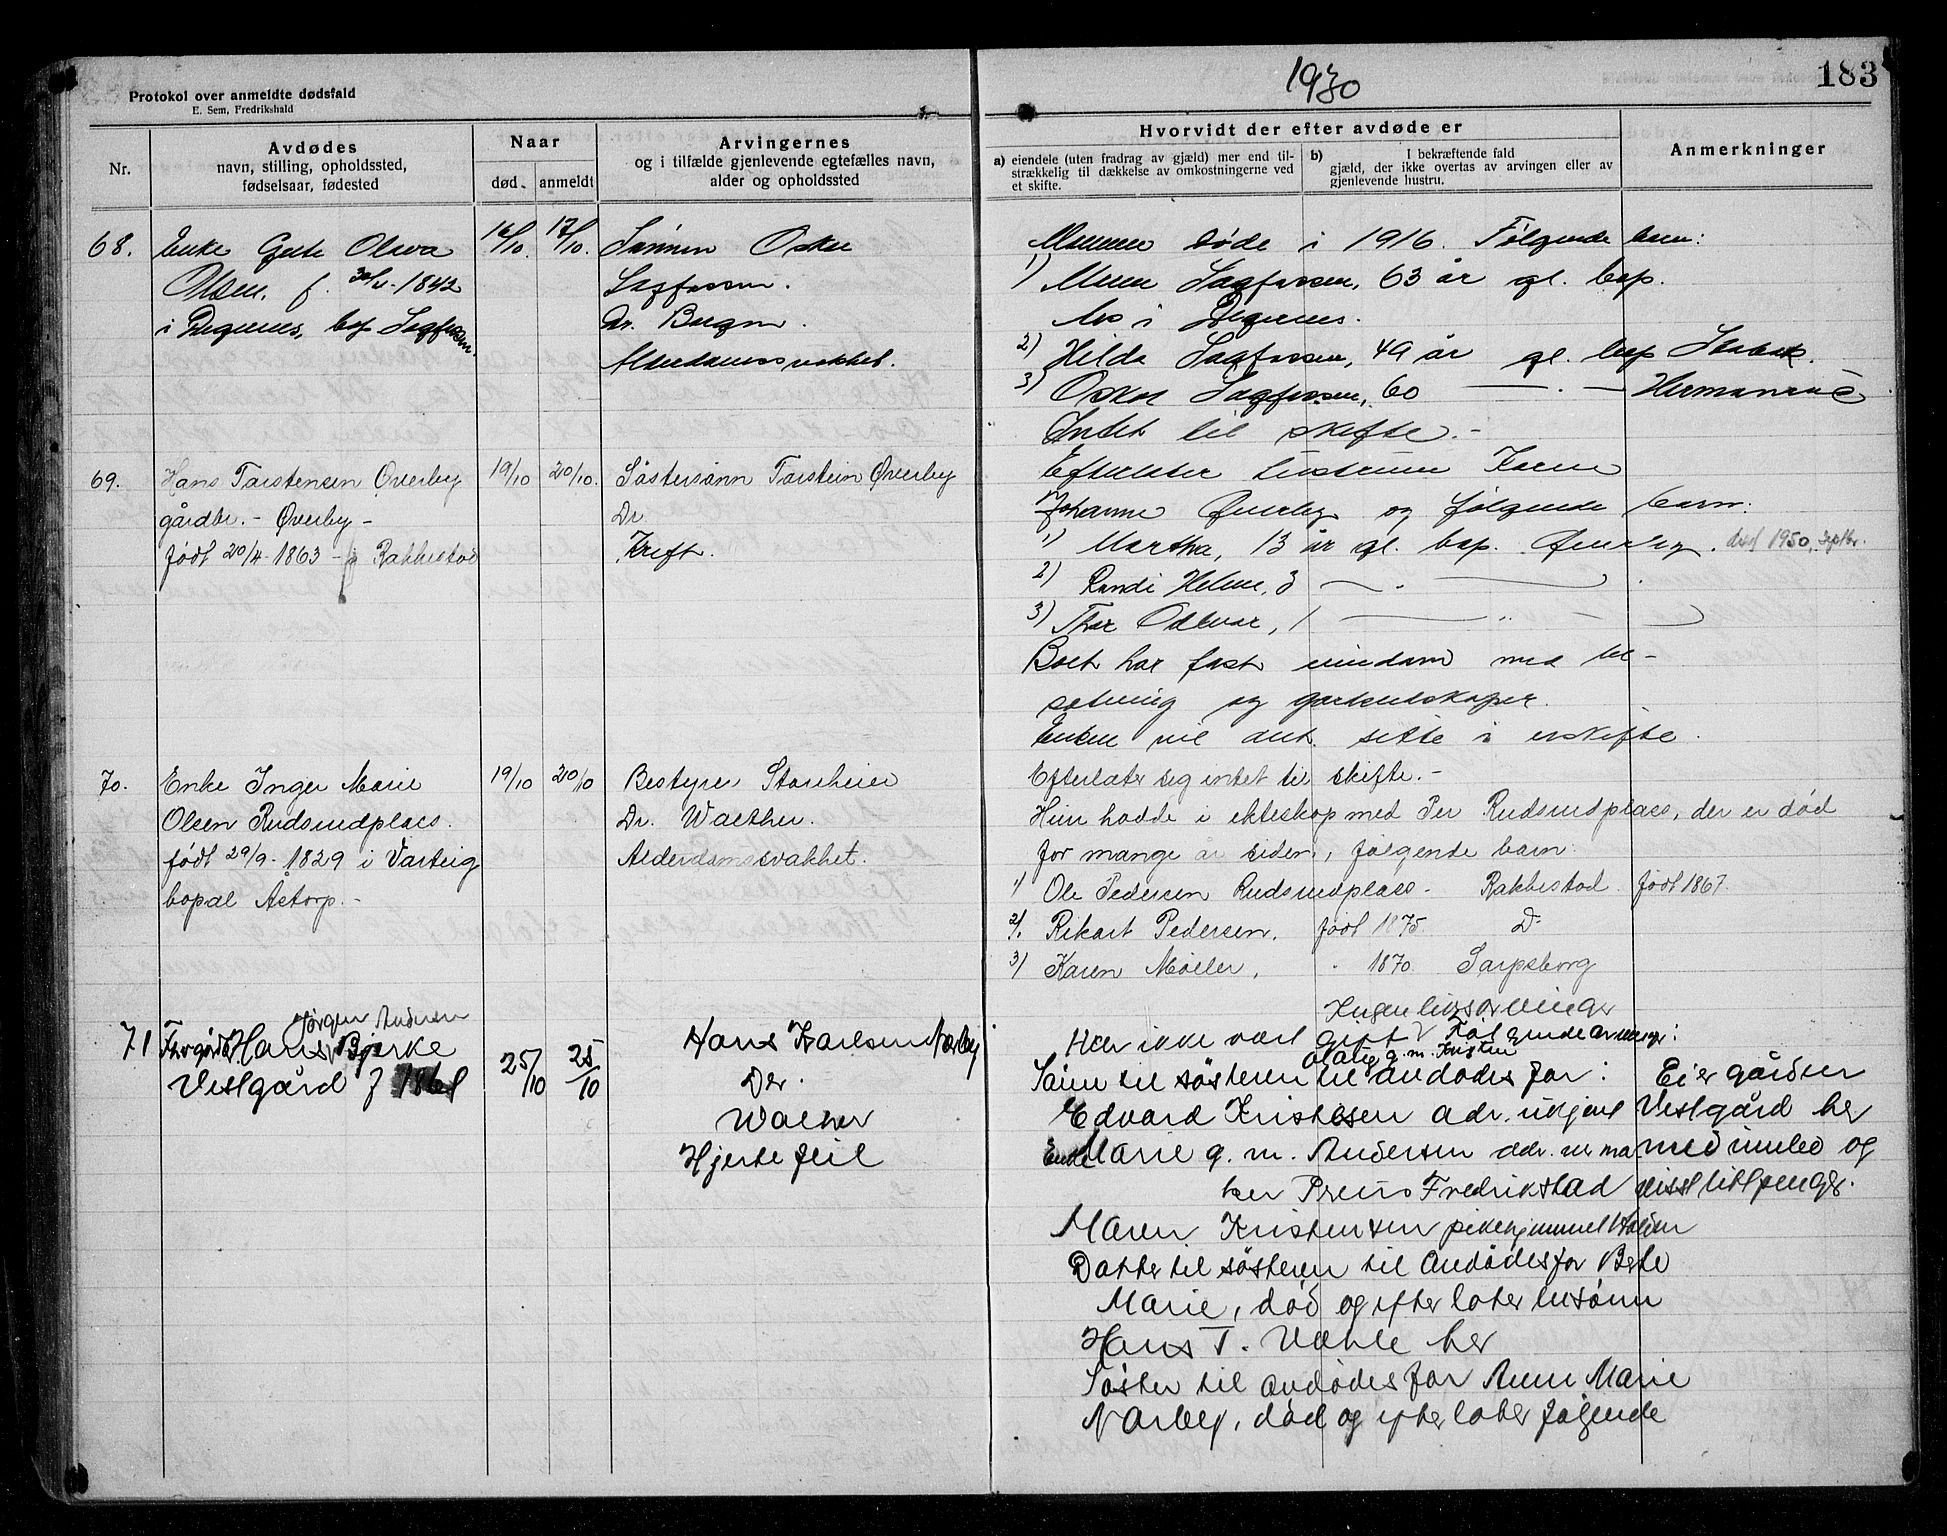 1930
183
Protokol over anmeldte dødsfald
E. Sem, Fredrikshald
Nr.
Avdødes
navn, stilling, opholdssted,
fødselsaar, fødested
Naar
død.
anmeldt
Arvingernes
og i tilfælde gjenlevende egtefælles navn,
alder og opholdssted
Hvorvidt der efter avdøde er
a) eiendele (uten fradrag av gjæld) mer end til-
strækkelig til dækkelse av omkostningerne ved
et skifte.
b) I bekræftende fald
gjæld, der ikke overtas av arvingen eller av
gjenlevende hustru.
Anmerkninger
68.
Enke Gute Oliva
Olsen. f. 1842
i Degernes, bop Sagfossen.
16/10.
17/10.
Sønnen Oskar
Sagfossen.
Dr. Borgen.
Alderdomssvakhet.
Mannen døde i 1916. Følgende barn:
1) Sagfossen, 63 år gl. bop.
Aas i Degernes.
2) Hilda Sagfossen, 49 år gl. bop
3) Oskar Sagfossen, 60 — . — Hermansrud
Intet til skifte. -
69.
Hans Torstensen Øverby
gårdbr. - Øverby -
født 20/4 - 1863 - i Rakkestad
19/10
20/10.
Søstersønn Torstein Øverby
Dr
Kreft.
Efterlater hustruen Karen
Johanne Øverby og følgende barn:
1) Martha, 13 år gl. bop. Øverby. død 1950, septbr.
2) Randi Helene, 3 — . —
3) Thor Oddvar, 1 — " —
Boet har fast eiendom med be-
setning og gårdsredskaper.
Enken vil ant. sitte i uskifte.
70.
Enke Inger Marie
Olsen Rudsundplass.
født 29/9 - 1829 i Varteig
bopæl Åstorp. -
19/10
20/10
Bestyrer Storeheier
Dr. Walther.
Alderdomssvakhet.
Efterlater sig intet til skifte. -
Hun hadde i ekteskap med Per Rudsundplass, der er død
for mange år siden, følgende barn:
1) Ole Pedersen Rudsundplass - Rakkestad. født 1867.
2). Rikart Pedersen, født 1875. D-
3) Karen Møller, " 1870. Sarpsborg
71
Jørgen Andersen
Hans Bjerke
Vestgård f 1861
25/10
25/10
Hans Karlsen Nærby
Der.
Walher
Hjertefeil
Ingen livsarvinger
Har ikke vært gift Følgende arvinger:
Olaug g. m. Kristen
Sønn til søsteren til avdødes far: Eier gården
Edvard Kristesen adr. ukjent Vestgård her
Enke Marie g. m. Andersen adr. med innbo og
ker Prens Fredrikstad visst litt penger.
Maren Kristensen pikehjemmet Halden
Datter til søsteren til avdødes far Berte
Marie, død og efterlater en sønn
Hans T. Væhle her
Søster til avdødes far Anne Marie
Nærby, død og efterlater følgende